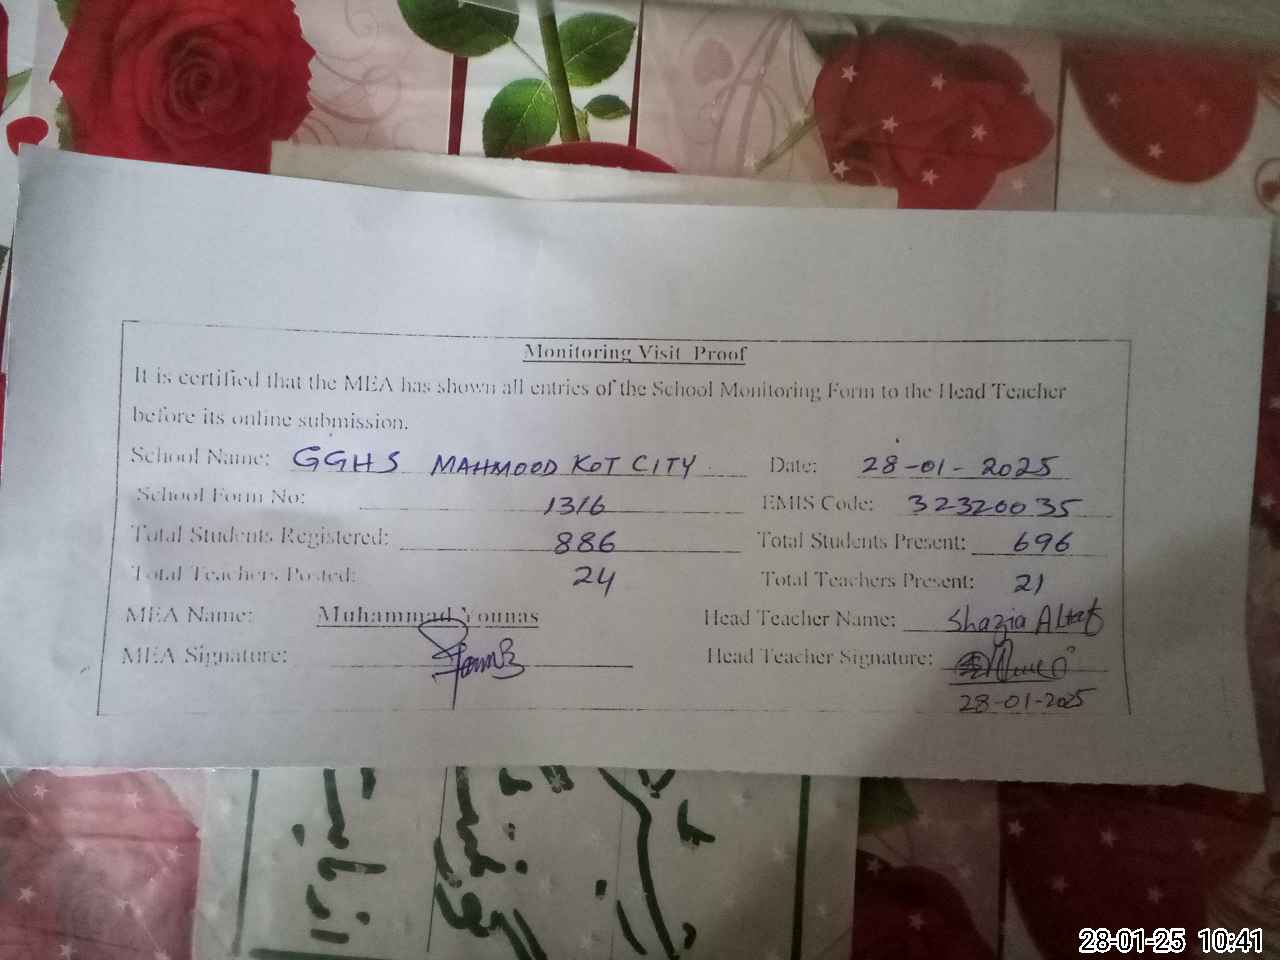 Monitoring Visit Proof
It is certified that the MEA has shown all entries of the School Monitoring Form to the Head Teacher
before its online submission.
School Name: GGHS MAHMOOD KOT CITY Date: 28-01-2025
School Form No: 1316 EMIS Code: 32320035
Total Students Registered: 886 Total Students Present: 696
Total Teachers Posted: 24 Total Teachers Present: 21
MEA Name: Muhammad Younas Head Teacher Name: Shazia Altaf
MEA Signature: Head Teacher Signature:
28-01-2025
28-01-25 10:41